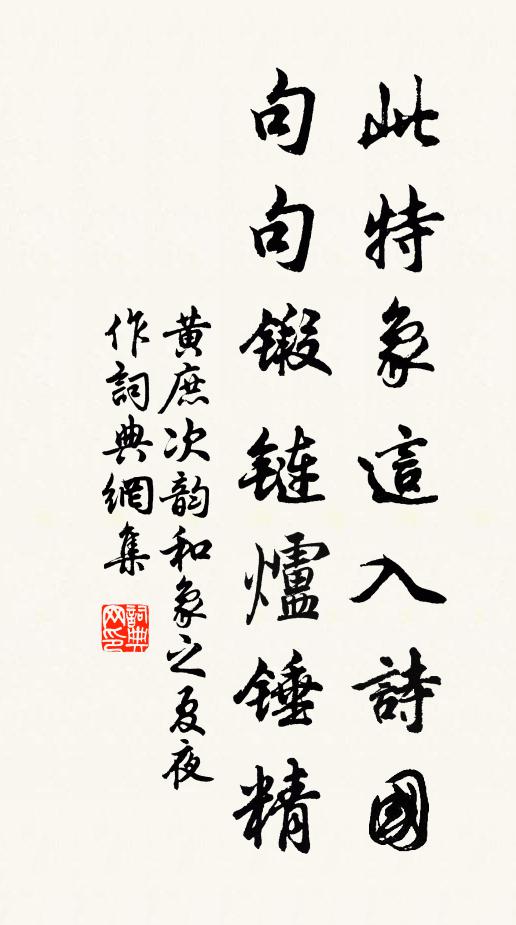 此特象這入詩國
句句鍛鏈爐錘精
黄庶次韵和象之夏夜
作詞典網集
詞典网印